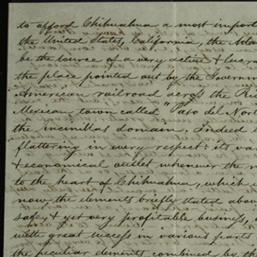 to afford Chihuahua a most import
the United States, California, the Atla
be the source of a very active & lucra
the place pointed out by the Governm
American railroad across the
Mexican town called "Paso del Nort
the incinillas domain. Indeed
flattering in every respect: its va
& economical outlet whenever the
to the heart of Chihuahua, which
now the elements briefly stated abov
safe, & yet very profitable business,
with great success in various parts
the peculiar elements combined by th